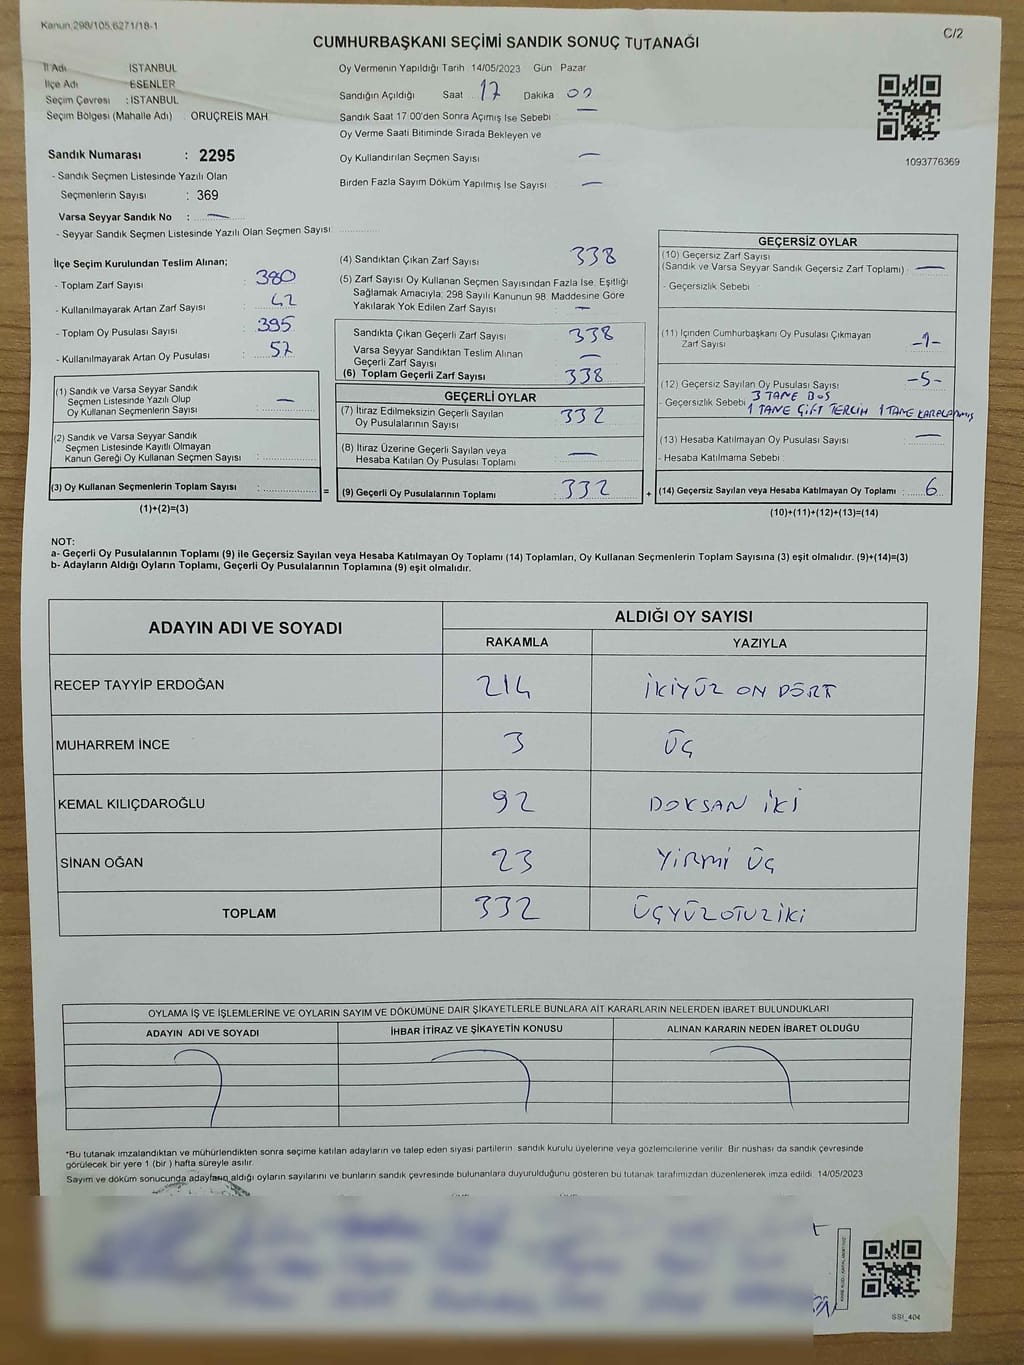 Kanun 298/105,6271/18-1
C/2
CUMHURBAŞKANI SEÇİMİ SANDIK SONUÇ TUTANAĞI
İl Adı İSTANBUL
İlçe Adı ESENLER
Seçim Çevresi : İSTANBUL
Seçim Bölgesi (Mahalle Adı) : ORUÇREİS MAH
Sandık Numarası : 2295
- Sandık Seçmen Listesinde Yazılı Olan
Seçmenlerin Sayısı : 369
Varsa Seyyar Sandık No : —
- Seyyar Sandık Seçmen Listesinde Yazılı Olan Seçmen Sayısı:
Oy Vermenin Yapıldığı Tarih 14/05/2023 Gün Pazar
Sandığın Açıldığı Saat 17 Dakika 00
Sandık Saat 17 00'den Sonra Açımış İse Sebebi —
Oy Verme Saati Bitiminde Sırada Bekleyen ve
Oy Kullandırılan Seçmen Sayısı —
Birden Fazla Sayım Döküm Yapılmış İse Sayısı —
1093776369
İlçe Seçim Kurulundan Teslim Alınan;
- Toplam Zarf Sayısı : 380
- Kullanılmayarak Artan Zarf Sayısı : 42
- Toplam Oy Pusulası Sayısı : 395
- Kullanılmayarak Artan Oy Pusulası : 57
(1) Sandık ve Varsa Seyyar Sandık
Seçmen Listesinde Yazılı Olup
Oy Kullanan Seçmenlerin Sayısı : —
(2) Sandık ve Varsa Seyyar Sandık
Seçmen Listesinde Kayıtlı Olmayan
Kanun Gereği Oy Kullanan Seçmen Sayısı :
(3) Oy Kullanan Seçmenlerin Toplam Sayısı :
(1)+(2)=(3)
=
(4) Sandıktan Çıkan Zarf Sayısı 338
(5) Zarf Sayısı Oy Kullanan Seçmen Sayısından Fazla İse, Eşitliği
Sağlamak Amacıyla; 298 Sayılı Kanunun 98. Maddesine Göre
Yakılarak Yok Edilen Zarf Sayısı : —
Sandıkta Çıkan Geçerli Zarf Sayısı : 338
Varsa Seyyar Sandıktan Teslim Alınan
Geçerli Zarf Sayısı —
(6) Toplam Geçerli Zarf Sayısı 338
GEÇERLİ OYLAR
(7) İtiraz Edilmeksizin Geçerli Sayılan
Oy Pusulalarının Sayısı : 332
(8) İtiraz Üzerine Geçerli Sayılan veya
Hesaba Katılan Oy Pusulası Toplamı : —
(9) Geçerli Oy Pusulalarının Toplamı : 332
+
GEÇERSİZ OYLAR
(10) Geçersiz Zarf Sayısı
(Sandık ve Varsa Seyyar Sandık Geçersiz Zarf Toplamı) : —
- Geçersizlik Sebebi :
(11) İçinden Cumhurbaşkanı Oy Pusulası Çıkmayan
Zarf Sayısı : -1-
(12) Geçersiz Sayılan Oy Pusulası Sayısı : -5-
- Geçersizlik Sebebi 3 TANE BOŞ
1 TANE ÇİFT TERCİH 1 TANE KARALANMIŞ
(13) Hesaba Katılmayan Oy Pusulası Sayısı : —
- Hesaba Katılmama Sebebi :
(14) Geçersiz Sayılan veya Hesaba Katılmayan Oy Toplamı : 6
(10)+(11)+(12)+(13)=(14)
NOT:
a- Geçerli Oy Pusulalarının Toplamı (9) ile Geçersiz Sayılan veya Hesaba Katılmayan Oy Toplamı (14) Toplamları, Oy Kullanan Seçmenlerin Toplam Sayısına (3) eşit olmalıdır. (9)+(14)=(3)
b- Adayların Aldığı Oyların Toplamı, Geçerli Oy Pusulalarının Toplamına (9) eşit olmalıdır.
ADAYIN ADI VE SOYADI ALDIĞI OY SAYISI
RAKAMLA YAZIYLA
RECEP TAYYİP ERDOĞAN 214 İKİYÜZ ON DÖRT
MUHARREM İNCE 3 ÜÇ
KEMAL KILIÇDAROĞLU 92 DOKSAN İKİ
SİNAN OĞAN 23 YİRMİ ÜÇ
TOPLAM 332 ÜÇYÜZOTUZİKİ
OYLAMA İŞ VE İŞLEMLERİNE VE OYLARIN SAYIM VE DÖKÜMÜNE DAİR ŞİKAYETLERLE BUNLARA AİT KARARLARIN NELERDEN İBARET BULUNDUKLARI
ADAYIN ADI VE SOYADI İHBAR İTİRAZ VE ŞİKAYETİN KONUSU ALINAN KARARIN NEDEN İBARET OLDUĞU
*Bu tutanak imzalandıktan ve mühürlendikten sonra seçime katılan adayların ve talep eden siyasi partilerin sandık kurulu üyelerine veya gözlemcilerine verilir. Bir nushası da sandık çevresinde
görülecek bir yere 1 (bir ) hafta süreyle asılır.
Sayım ve döküm sonucunda adayların aldığı oyların sayılarını ve bunların sandık çevresinde bulunanlara duyurulduğunu gösteren bu tutanak tarafımızdan düzenlenerek imza edildi. 14/05/2023
SSI_404